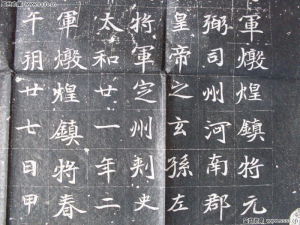 軍燉煌鎮將元
弼司州河南郡
皇帝之玄孫左
將軍定州刺史
太和廿一年二
軍燉煌鎮將春
午朔廿七日甲